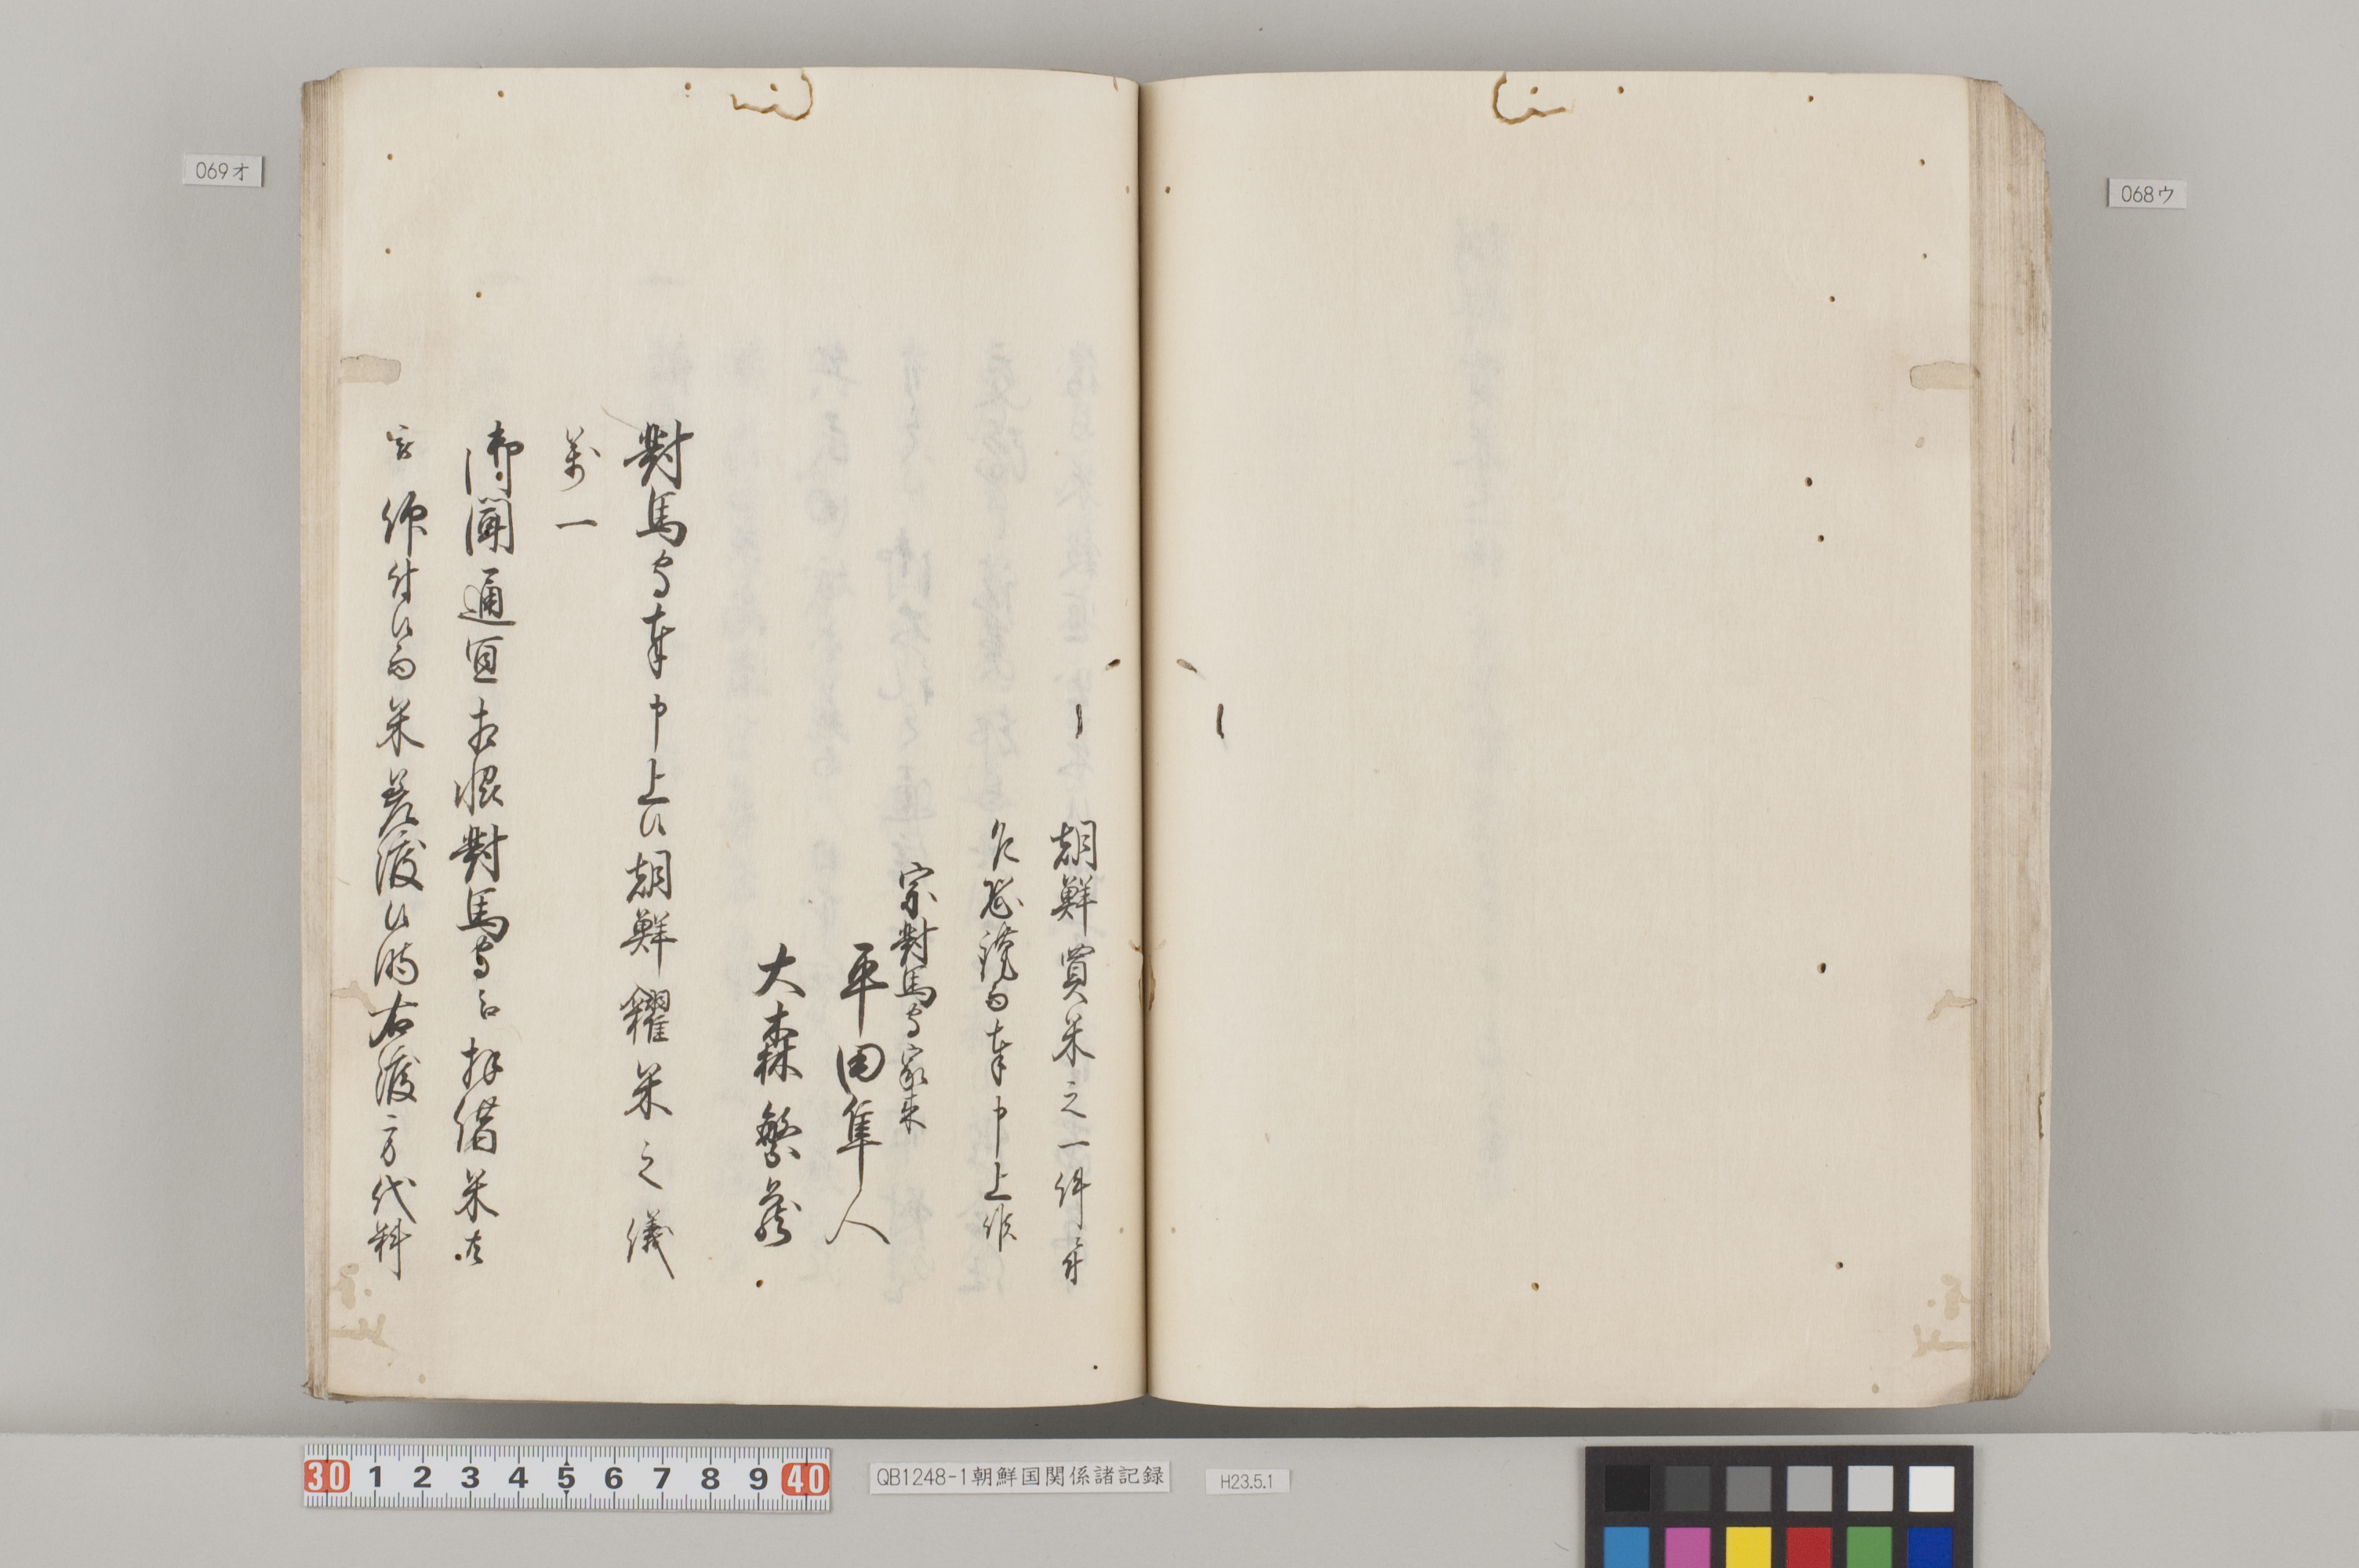 068ウ
069オ
朝鮮買米之一件
乍恐讒而奉申上候
宗對馬守家来
平田隼人
大森繁右衛門
對馬守奉申上候朝鮮糴米之儀
萬一
御聞通宜相濟對馬守ゟ拝借米
被 仰付候而米差渡候時右渡方代料
30 1 2 3 4 5 6 7 8 9 40
QB1248-1朝鮮国関係諸記録
H23.5.1